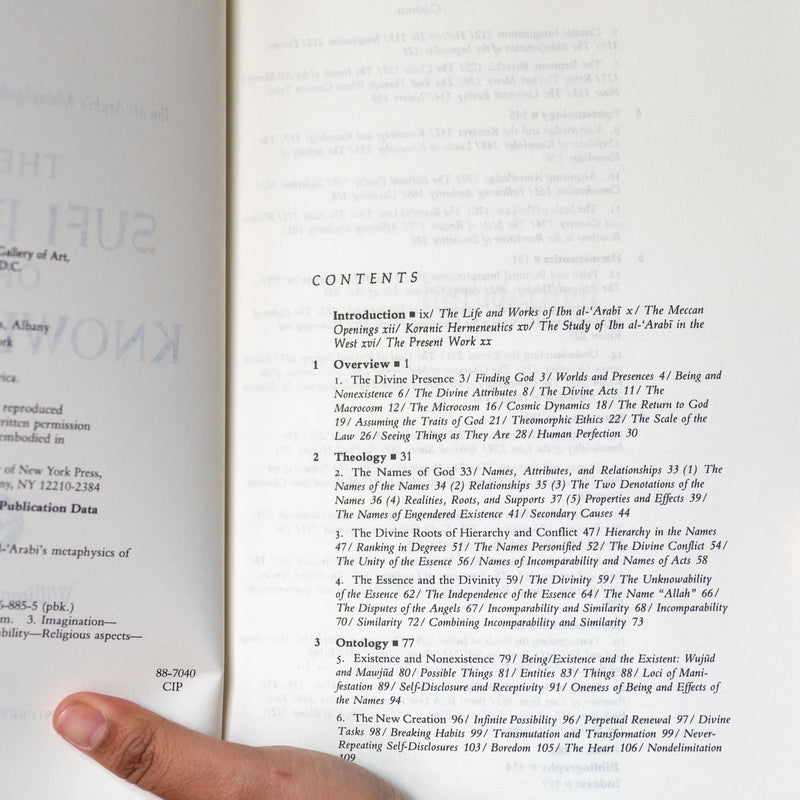 Gallery of Art,
D.C.
Albany
rica.
reproduced
written permission
embodied in
of New York Press,
ny, NY 12210-2384
Publication Data
l-‘Arabi's metaphysics of
6-885-5 (pbk.)
m. 3. Imagination—
bility—Religious aspects—
88-7040
CIP
CONTENTS
Introduction ■ ix/ The Life and Works of Ibn al-‘Arabī x/ The Meccan
Openings xii/ Koranic Hermeneutics xv/ The Study of Ibn al-‘Arabī in the
West xvi/ The Present Work xx
1 Overview ■ 1
1. The Divine Presence 3/ Finding God 3/ Worlds and Presences 4/ Being and
Nonexistence 6/ The Divine Attributes 8/ The Divine Acts 11/ The
Macrocosm 12/ The Microcosm 16/ Cosmic Dynamics 18/ The Return to God
19/ Assuming the Traits of God 21/ Theomorphic Ethics 22/ The Scale of the
Law 26/ Seeing Things as They Are 28/ Human Perfection 30
2 Theology ■ 31
2. The Names of God 33/ Names, Attributes, and Relationships 33 (1) The
Names of the Names 34 (2) Relationships 35 (3) The Two Denotations of the
Names 36 (4) Realities, Roots, and Supports 37 (5) Properties and Effects 39/
The Names of Engendered Existence 41/ Secondary Causes 44
3. The Divine Roots of Hierarchy and Conflict 47/ Hierarchy in the Names
47/ Ranking in Degrees 51/ The Names Personified 52/ The Divine Conflict 54/
The Unity of the Essence 56/ Names of Incomparability and Names of Acts 58
4. The Essence and the Divinity 59/ The Divinity 59/ The Unknowability
of the Essence 62/ The Independence of the Essence 64/ The Name “Allah” 66/
The Disputes of the Angels 67/ Incomparability and Similarity 68/ Incomparability
70/ Similarity 72/ Combining Incomparability and Similarity 73
3 Ontology ■ 77
5. Existence and Nonexistence 79/ Being/Existence and the Existent: Wujūd
and Mawjūd 80/ Possible Things 81/ Entities 83/ Things 88/ Loci of Mani-
festation 89/ Self-Disclosure and Receptivity 91/ Oneness of Being and Effects of
the Names 94
6. The New Creation 96/ Infinite Possibility 96/ Perpetual Renewal 97/ Divine
Tasks 98/ Breaking Habits 99/ Transmutation and Transformation 99/ Never-
Repeating Self-Disclosures 103/ Boredom 105/ The Heart 106/ Nondelimitation
109